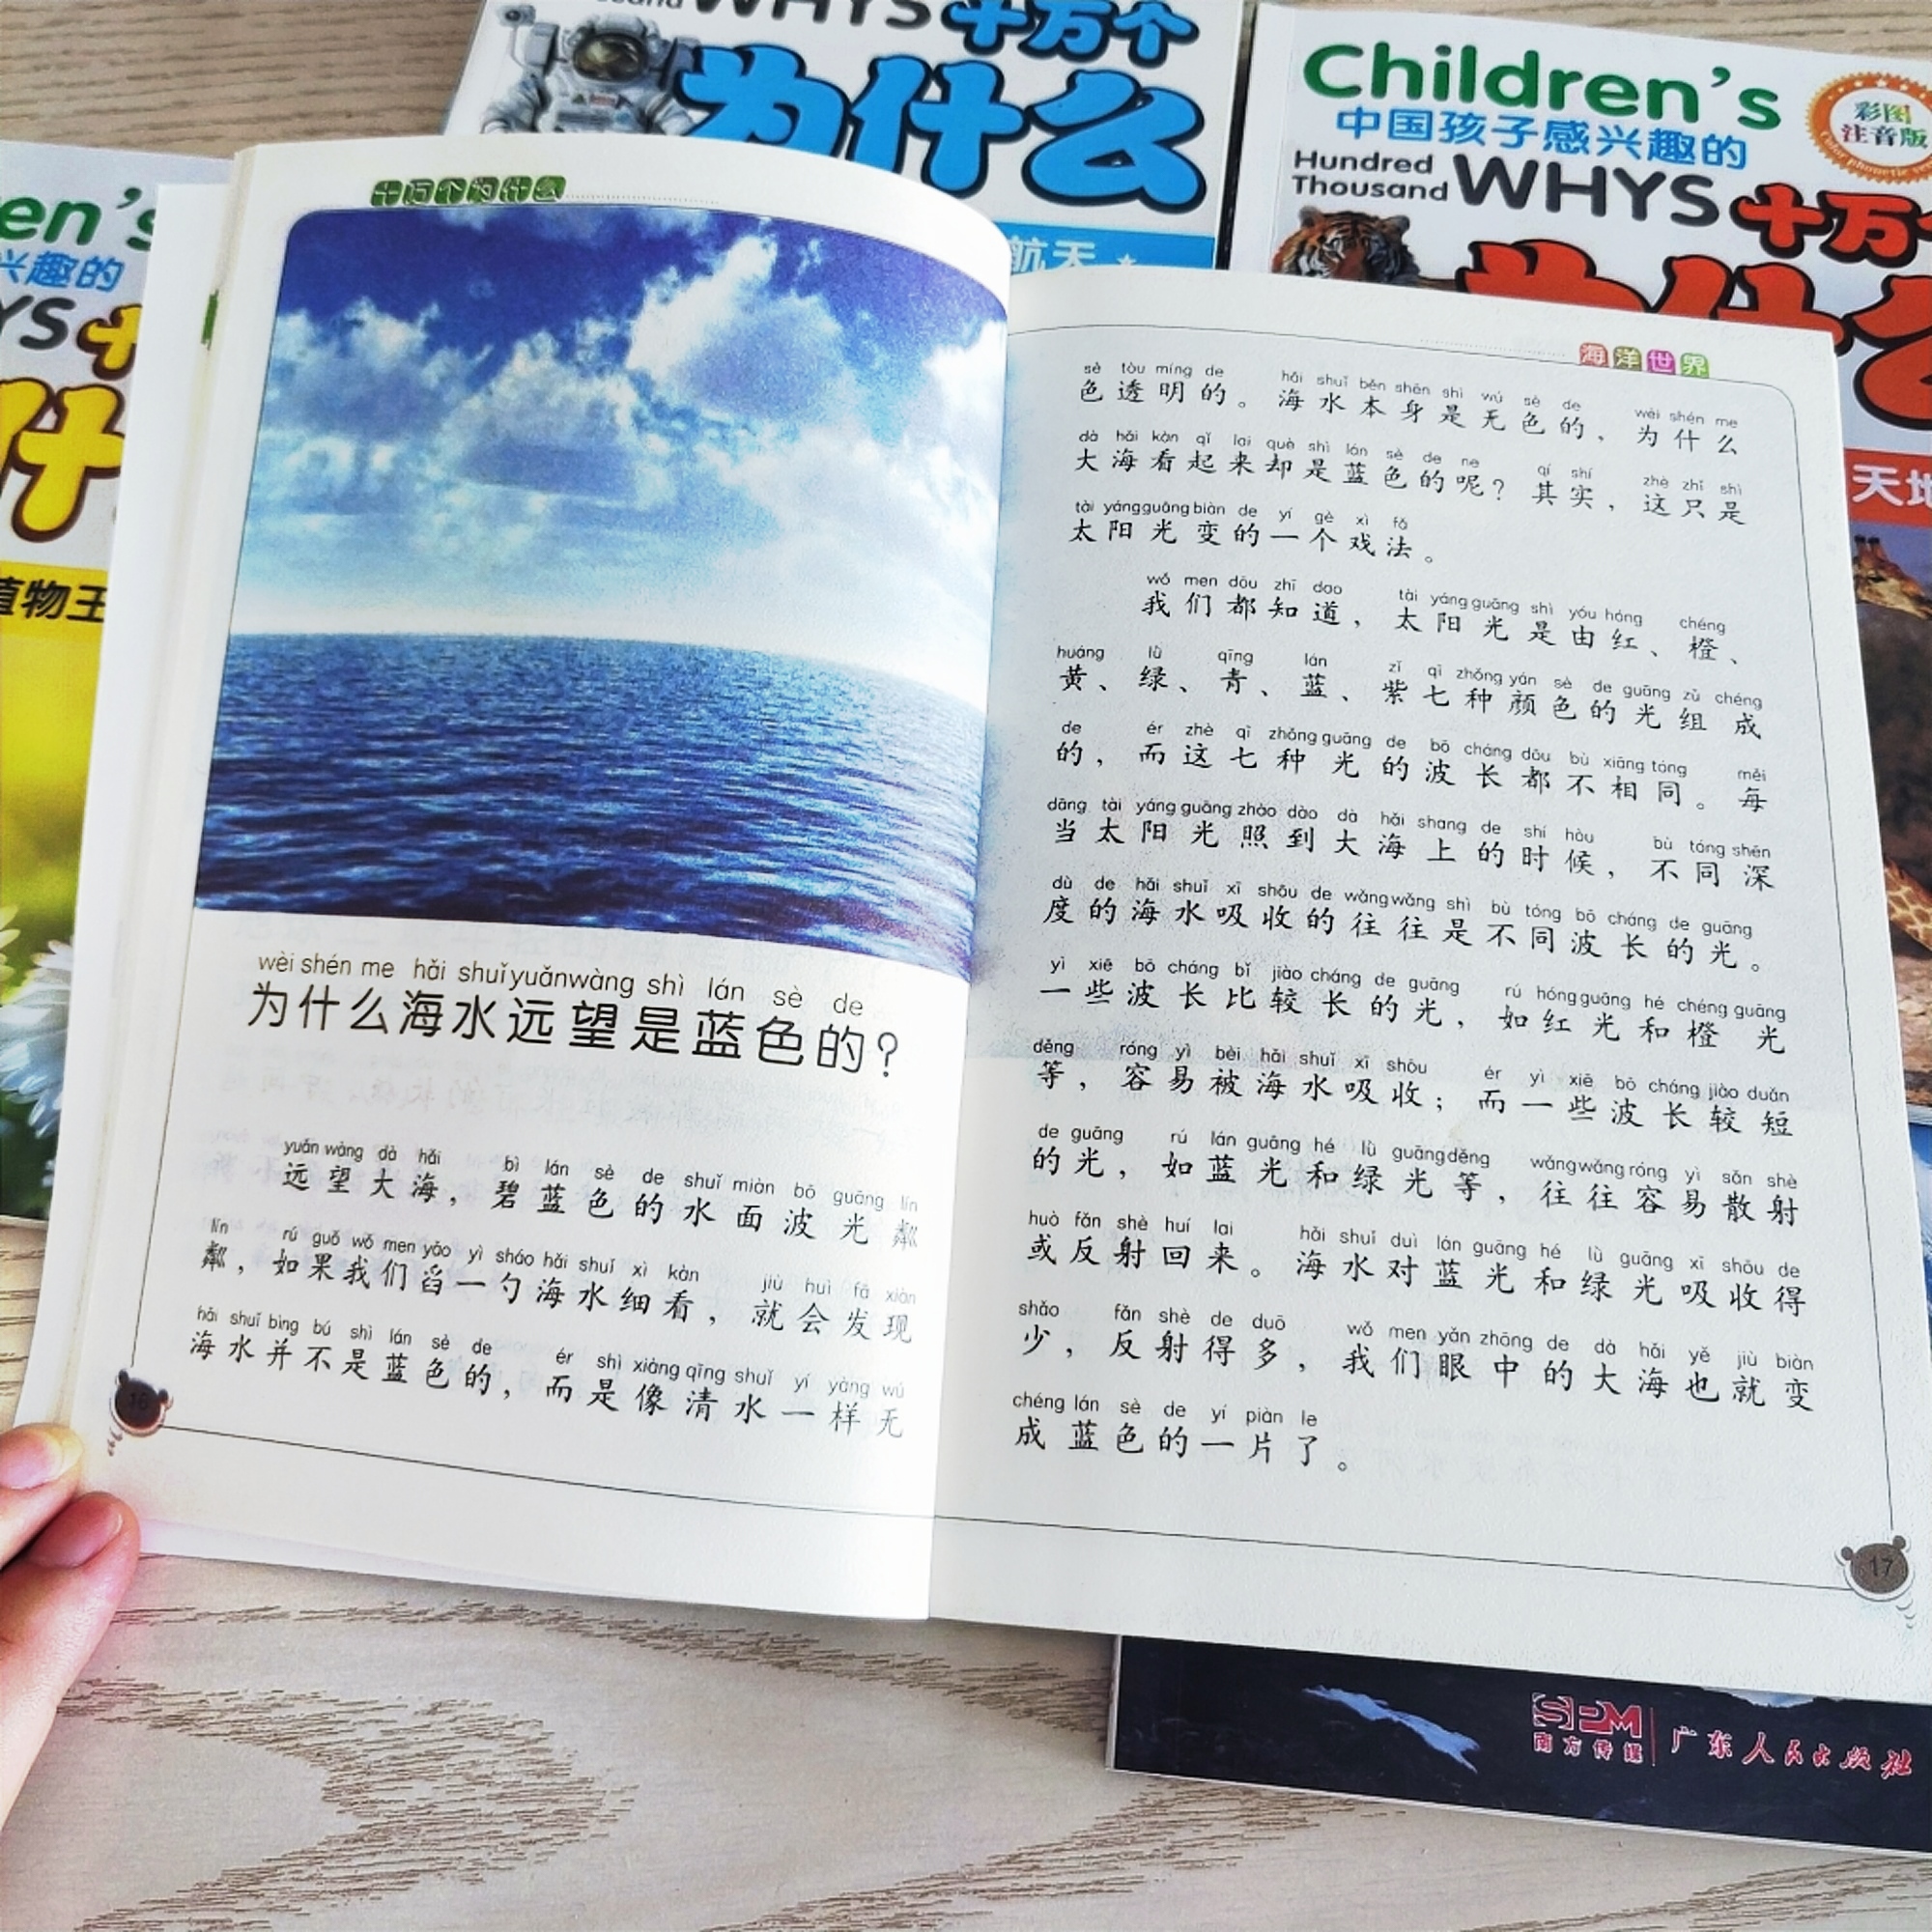 WHYS 十万个
为什么
航天
Children's
中国孩子感兴趣的
彩图
注音版
Hundred
Thousand
WHYS 十万
为什么
天地
en's
兴趣的
YS 十
什
植物王
十万个为什么
wèi shén me hǎi shuǐ yuǎn wàng shì lán sè de
为什么海水远望是蓝色的?
yuǎn wàng dà hǎi bì lán sè de shuǐ miàn bō guāng lín
远望大海，碧蓝色的水面波光粼
lín rú guǒ wǒ men yǎo yì sháo hǎi shuǐ xì kàn jiù huì fā xiàn
粼，如果我们舀一勺海水细看，就会发现
hǎi shuǐ bìng bú shì lán sè de ér shì xiàng qīng shuǐ yí yàng wú
海水并不是蓝色的，而是像清水一样无
16
海洋世界
sè tòu míng de hǎi shuǐ běn shēn shì wú sè de wèi shén me
色透明的。海水本身是无色的，为什么
dà hǎi kàn qǐ lai què shì lán sè de ne qí shí zhè zhǐ shì
大海看起来却是蓝色的呢？其实，这只是
tài yáng guāng biàn de yí gè xì fǎ
太阳光变的一个戏法。
wǒ men dōu zhī dao tài yáng guāng shì yóu hóng chéng
我们都知道，太阳光是由红、橙、
huáng lǜ qīng lán zǐ qī zhǒng yán sè de guāng zǔ chéng
黄、绿、青、蓝、紫七种颜色的光组成
de ér zhè qī zhǒng guāng de bō cháng dōu bù xiāng tóng měi
的，而这七种光的波长都不相同。每
dāng tài yáng guāng zhào dào dà hǎi shang de shí hòu bù tóng shēn
当太阳光照到大海上的时候，不同深
dù de hǎi shuǐ xī shōu de wǎng wǎng shì bù tóng bō cháng de guāng
度的海水吸收的往往是不同波长的光。
yì xiē bō cháng bǐ jiào cháng de guāng rú hóng guāng hé chéng guāng
一些波长比较长的光，如红光和橙光
děng róng yì bèi hǎi shuǐ xī shōu ér yì xiē bō cháng jiào duǎn
等，容易被海水吸收；而一些波长较短
de guāng rú lán guāng hé lǜ guāng děng wǎng wǎng róng yì sǎn shè
的光，如蓝光和绿光等，往往容易散射
huò fǎn shè huí lai hǎi shuǐ duì lán guāng hé lǜ guāng xī shōu de
或反射回来。海水对蓝光和绿光吸收得
shǎo fǎn shè de duō wǒ men yǎn zhōng de dà hǎi yě jiù biàn
少，反射得多，我们眼中的大海也就变
chéng lán sè de yí piàn le
成蓝色的一片了。
17
SPM
南方传媒
广东人民出版社